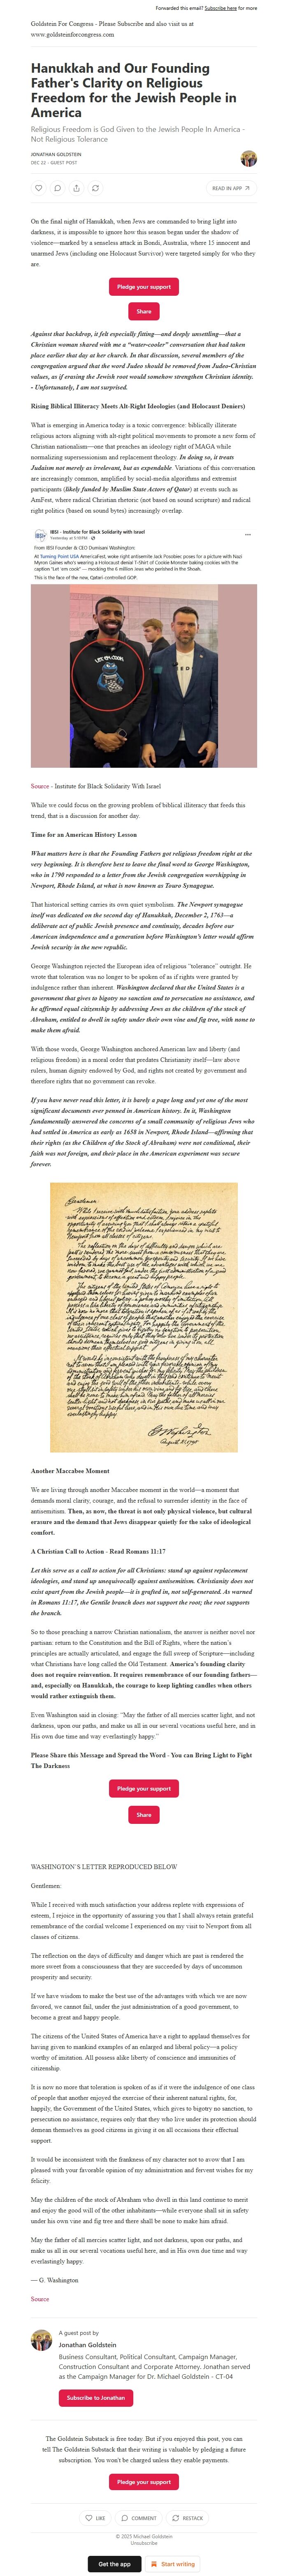 Forwarded this email? Subscribe here for more
Goldstein For Congress - Please Subscribe and also visit us at
www.goldsteinforcongress.com
Hanukkah and Our Founding
Father's Clarity on Religious
Freedom for the Jewish People in
America
Religious Freedom is God Given to the Jewish People In America -
Not Religious Tolerance
JONATHAN GOLDSTEIN
DEC 22 · GUEST POST
READ IN APP
On the final night of Hanukkah, when Jews are commanded to bring light into
darkness, it is impossible to ignore how this season began under the shadow of
violence—marked by a senseless attack in Bondi, Australia, where 15 innocent and
unarmed Jews (including one Holocaust Survivor) were targeted simply for who they
are.
Pledge your support
Share
Against that backdrop, it felt especially fitting—and deeply unsettling—that a
Christian woman shared with me a "water-cooler" conversation that had taken
place earlier that day at her church. In that discussion, several members of the
congregation argued that the word Judeo should be removed from Judeo-Christian
values, as if erasing the Jewish root would somehow strengthen Christian identity.
- Unfortunately, I am not surprised.
Rising Biblical Illiteracy Meets Alt-Right Ideologies (and Holocaust Deniers)
What is emerging in America today is a toxic convergence: biblically illiterate
religious actors aligning with alt-right political movements to promote a new form of
Christian nationalism—one that preaches an ideology right of MAGA while
normalizing supersessionism and replacement theology. In doing so, it treats
Judaism not merely as irrelevant, but as expendable. Variations of this conversation
are increasingly common, amplified by social-media algorithms and extremist
participants (likely funded by Muslim State Actors of Qatar) at events such as
AmFest, where radical Christian rhetoric (not based on sound scripture) and radical
right politics (based on sound bytes) increasingly overlap.
IBSI - Institute for Black Solidarity with Israel
Yesterday at 5:09 PM
From IBSI Founder & CEO Dumisani Washington:
At Turning Point USA AmericaFest, woke right antisemite Jack Posobiec poses for a picture with Nazi
Myron Gaines who's wearing a Holocaust denial T-Shirt of Cookie Monster baking cookies with the
caption "Let 'em cook" — mocking the 6 million Jews who perished in the Shoah.
This is the face of the new, Qatari-controlled GOP.
Source - Institute for Black Solidarity With Israel
While we could focus on the growing problem of biblical illiteracy that feeds this
trend, that is a discussion for another day.
Time for an American History Lesson
What matters here is that the Founding Fathers got religious freedom right at the
very beginning. It is therefore best to leave the final word to George Washington,
who in 1790 responded to a letter from the Jewish congregation worshipping in
Newport, Rhode Island, at what is now known as Touro Synagogue.
That historical setting carries its own quiet symbolism. The Newport synagogue
itself was dedicated on the second day of Hanukkah, December 2, 1763—a
deliberate act of public Jewish presence and continuity, decades before our
American independence and a generation before Washington's letter would affirm
Jewish security in the new republic.
George Washington rejected the European idea of religious "tolerance" outright. He
wrote that toleration was no longer to be spoken of as if rights were granted by
indulgence rather than inherent. Washington declared that the United States is a
government that gives to bigotry no sanction and to persecution no assistance, and
he affirmed equal citizenship by addressing Jews as the children of the stock of
Abraham, entitled to dwell in safety under their own vine and fig tree, with none to
make them afraid.
With those words, George Washington anchored American law and liberty (and
religious freedom) in a moral order that predates Christianity itself—law above
rulers, human dignity endowed by God, and rights not created by government and
therefore rights that no government can revoke.
If you have never read this letter, it is barely a page long and yet one of the most
significant documents ever penned in American history. In it, Washington
fundamentally answered the concerns of a small community of religious Jews who
had settled in America as early as 1658 in Newport, Rhode Island—affirming that
their rights (as the Children of the Stock of Abraham) were not conditional, their
faith was not foreign, and their place in the American experiment was secure
forever.
Gentlemen
Another Maccabee Moment
We are living through another Maccabee moment in the world—a moment that
demands moral clarity, courage, and the refusal to surrender identity in the face of
antisemitism. Then, as now, the threat is not only physical violence, but cultural
erasure and the demand that Jews disappear quietly for the sake of ideological
comfort.
A Christian Call to Action - Read Romans 11:17
Let this serve as a call to action for all Christians: stand up against replacement
ideologies, and stand up unequivocally against antisemitism. Christianity does not
exist apart from the Jewish people—it is grafted in, not self-generated. As warned
in Romans 11:17, the Gentile branch does not support the root; the root supports
the branch.
So to those preaching a narrow Christian nationalism, the answer is neither new nor
partisan: return to the Constitution and the Bill of Rights, where the nation's
principles are actually articulated, and engage the full sweep of Scripture—including
what Christians have long called the Old Testament. America's founding clarity
does not require reinvention. It requires remembrance of our founding fathers—
and, especially on Hanukkah, the courage to keep lighting candles when others
would rather extinguish them.
Even Washington said in closing: "May the father of all mercies scatter light, and not
darkness, upon our paths, and make us all in our several vocations useful here, and in
His own due time and way everlastingly happy."
Please Share this Message and Spread the Word - You can Bring Light to Fight
The Darkness
Pledge your support
Share
WASHINGTON'S LETTER REPRODUCED BELOW
Gentlemen:
While I received with much satisfaction your address replete with expressions of
esteem, I rejoice in the opportunity of assuring you that I shall always retain grateful
remembrance of the cordial welcome I experienced on my visit to Newport from all
classes of citizens.
The reflection on the days of difficulty and danger which are past is rendered the
more sweet from a consciousness that they are succeeded by days of uncommon
prosperity and security.
If we have wisdom to make the best use of the advantages with which we are now
favored, we cannot fail, under the just administration of a good government, to
become a great and happy people.
The citizens of the United States of America have a right to applaud themselves for
having given to mankind examples of an enlarged and liberal policy—a policy
worthy of imitation. All possess alike liberty of conscience and immunities of
citizenship.
It is now no more that toleration is spoken of as if it were the indulgence of one class
of people that another enjoyed the exercise of their inherent natural rights, for,
happily, the Government of the United States, which gives to bigotry no sanction, to
persecution no assistance, requires only that they who live under its protection should
demean themselves as good citizens in giving it on all occasions their effectual
support.
It would be inconsistent with the frankness of my character not to avow that I am
pleased with your favorable opinion of my administration and fervent wishes for my
felicity.
May the children of the stock of Abraham who dwell in this land continue to merit
and enjoy the good will of the other inhabitants—while everyone shall sit in safety
under his own vine and fig tree and there shall be none to make him afraid.
May the father of all mercies scatter light, and not darkness, upon our paths, and
make us all in our several vocations useful here, and in His own due time and way
everlastingly happy.
— G. Washington
Source
A guest post by
Jonathan Goldstein
Business Consultant, Political Consultant, Campaign Manager,
Construction Consultant and Corporate Attorney. Jonathan served
as the Campaign Manager for Dr. Michael Goldstein - CT-04
Subscribe to Jonathan
The Goldstein Substack is free today. But if you enjoyed this post, you can
tell The Goldstein Substack that their writing is valuable by pledging a future
subscription. You won't be charged unless they enable payments.
Pledge your support
LIKE
COMMENT
RESTACK
© 2025 Michael Goldstein
Unsubscribe
Get the app
Start writing